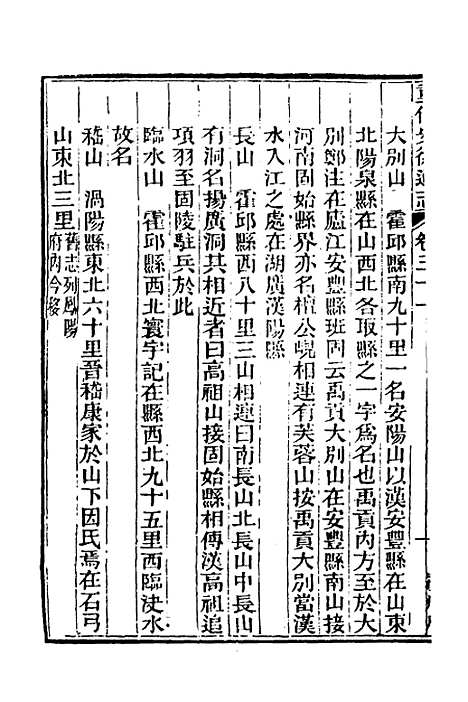 大別山　霍邱縣南九十里一名安陽山以漢安豐縣在山東
北陽泉縣在山西北各取縣之一字爲名也禹貢內方至於大
別鄭注在廬江安豐縣班固云禹貢大別山在安豐縣南山接
河南固始縣界亦名檀公峴相連有芙蓉山按禹貢大別當漢
水入江之處在湖廣漢陽縣
長山　霍邱縣西八十里三山相連曰南長山北長山中長山
有洞名揚廣洞其相近者曰高祖山接固始縣相傳漢高祖追
項羽至固陵駐兵於此
臨水山　霍邱縣西北寰宇記在縣西北九十五里西臨決水
故名
嵇山　渦陽縣東北六十里晉嵇康家於山下因氏焉在石弓
山東北三里舊志列鳳陽府內今移